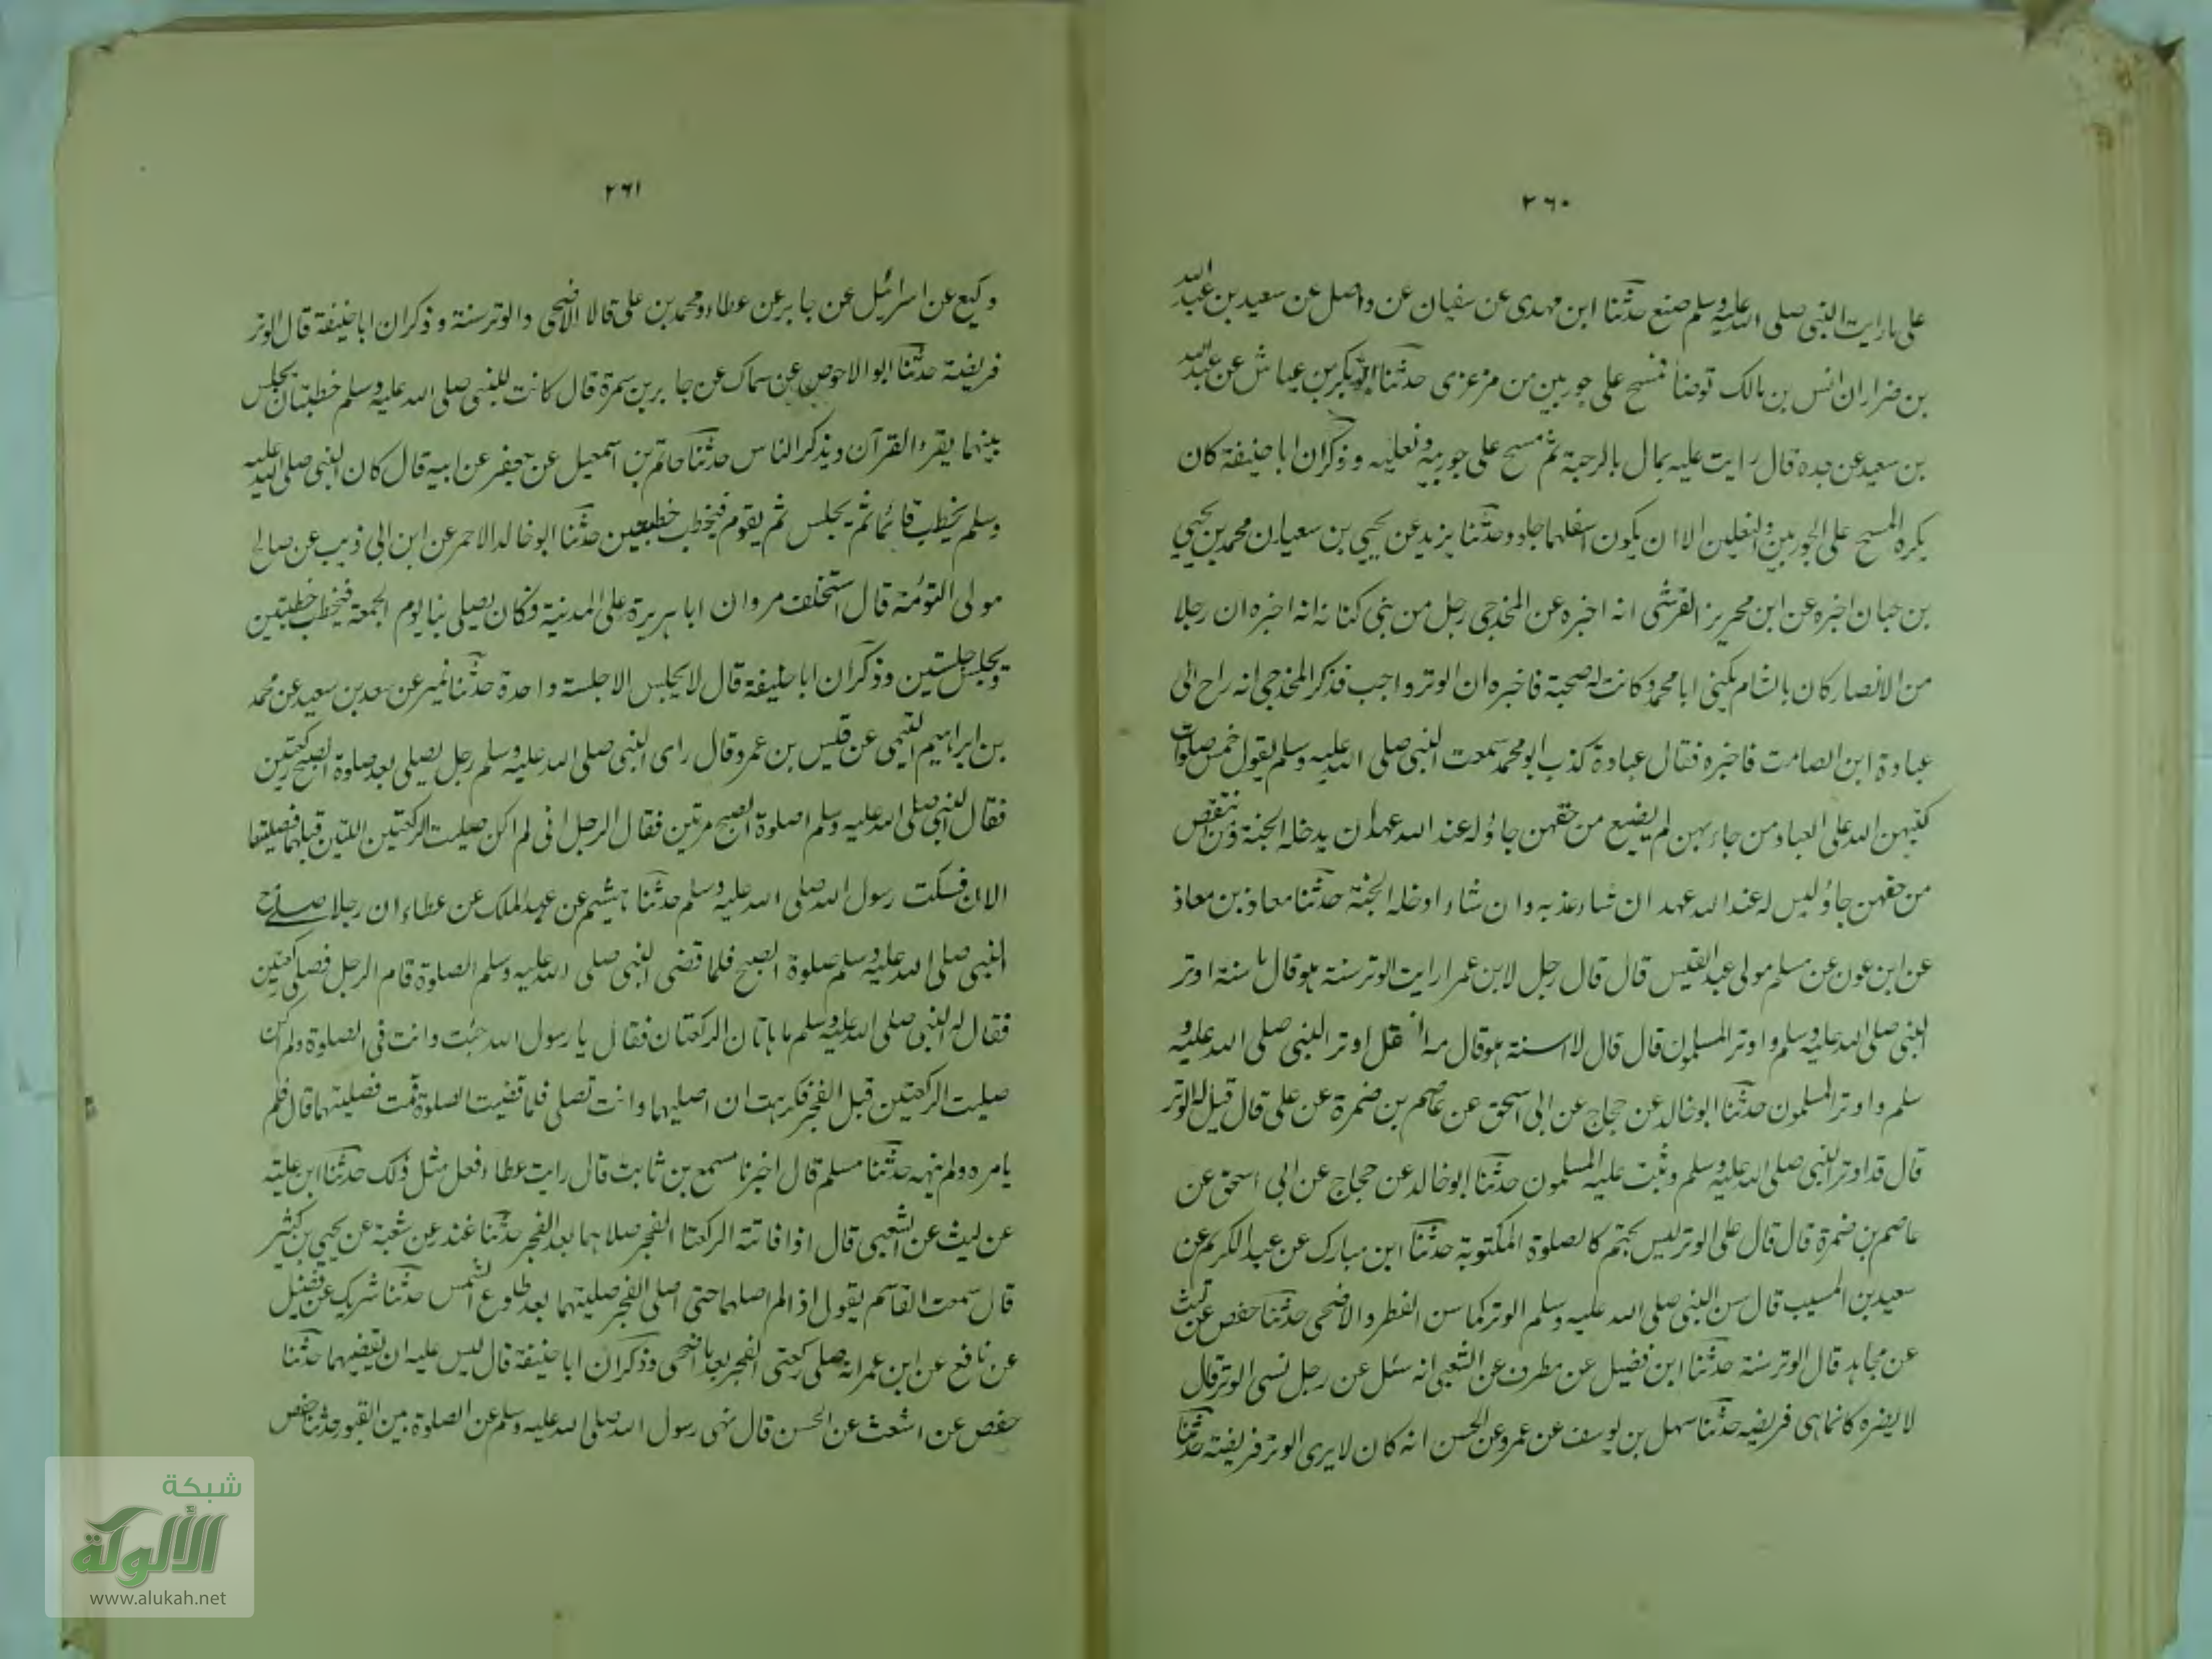 ٢٦٠
على ما رايت النبى صلى الله عليه وسلم صنع حدثنا ابن مهدى عن سفيان عن واصل عن سعيد بن عبد الله
بن ضرار ان انس بن مالك توضأ فمسح على جوربين من مرعزى حدثنا ابو بكر بن عياش عن عبد الله
بن سعيد عن جده قال رايت عليه بمال بالرحبة ثم مسح على جوربيه ونعليه وذكر ان ابا حنيفة كان
يكره المسح على الجوربين والنعلين الا ان يكون اسفلهما جلود حدثنا يزيد عن يحيى بن سعيد ان محمد بن يحيى
بن حبان اخبره عن ابن محيريز القرشى انه اخبره عن المخدجى رجل من بنى كنانة انه اخبره ان رجلا
من الانصار كان بالشام يكنى ابا محمد وكانت له صحبة فاخبره ان الوتر واجب فذكر المخدجى انه راح الى
عبادة ابن الصامت فاخبره فقال عبادة كذب ابو محمد سمعت النبى صلى الله عليه وسلم يقول خمس صلوات
كتبهن الله على العباد من جاء بهن لم يضيع من حقهن جاء وله عند الله عهد ان يدخله الجنة ومن انتقص
من حقهن جاء وليس له عند الله عهد ان شاء عذبه وان شاء ادخله الجنة حدثنا معاذ بن معاذ
عن ابن عون عن مسلم مولى عبد القيس قال قال رجل لابن عمر ارايت الوتر سنة هو قال ما سنة اوتر
النبى صلى الله عليه وسلم واوتر المسلمون قال قال لا اسنة هو قال مه اتعقل اوتر النبى صلى الله عليه و
سلم واوتر المسلمون حدثنا ابو خالد عن حجاج عن ابى اسحق عن عاصم بن ضمرة عن على قال قيل له الوتر
قال قد اوتر النبى صلى الله عليه وسلم وثبت عليه المسلمون حدثنا ابو خالد عن حجاج عن ابى اسحق عن
عاصم بن ضمرة قال قال على الوتر ليس بحتم كالصلوة المكتوبة حدثنا ابن مبارك عن عبد الكريم عن
سعيد بن المسيب قال سن النبى صلى الله عليه وسلم الوتر كما سن الفطر والاضحى حدثنا حفص عن ليث
عن مجاهد قال الوتر سنة حدثنا ابن فضيل عن مطرف عن الشعبى انه سئل عن رجل نسى الوتر قال
لا يضره كانما هى فريضه حدثنا سهل بن يوسف عن عمرو عن الحسن انه كان لا يرى الوتر فريضة حدثنا
٢٦١
وكيع عن اسرائيل عن جابر عن عطاء ومحمد بن على قالا الاضحى والوتر سنة وذكر ان ابا حنيفة قال الوتر
فريضة حدثنا ابو الاحوص عن سماك عن جابر بن سمرة قال كانت للنبى صلى الله عليه وسلم خطبتان يجلس
بينهما يقرء القرآن ويذكر الناس حدثنا حاتم بن اسمعيل عن جعفر عن ابيه قال كان النبى صلى الله عليه
وسلم يخطب قائما ثم يجلس ثم يقوم فيخطب خطبتين حدثنا ابو خالد الاحمر عن ابن ابى ذيب عن صالح
مولى التوئمة قال استخلف مروان ابا هريرة على المدينة فكان يصلى بنا يوم الجمعة فيخطب خطبتين
ويجلس جلستين وذكر ان ابا حنيفة قال لا يجلس الا جلسة واحدة حدثنا نمير عن سعد بن سعيد عن محمد
بن ابراهيم التيمى عن قيس بن عمرو قال راى النبى صلى الله عليه وسلم رجل يصلى بعد صلوة الصبح ركعتين
فقال النبى صلى الله عليه وسلم اصلوة الصبح مرتين فقال الرجل انى لم اكن صليت الركعتين اللتين قبلهما فصليتها
الان فسكت رسول الله صلى الله عليه وسلم حدثنا هشيم عن عبد الملك عن عطاء ان رجلا صلى مع
النبى صلى الله عليه وسلم صلوة الصبح فلما قضى النبى صلى الله عليه وسلم الصلوة قام الرجل فصلى ركعتين
فقال له النبى صلى الله عليه وسلم ما هاتان الركعتان فقال يا رسول الله جئت وانت فى الصلوة ولم اكن
صليت الركعتين قبل الفجر فكرهت ان اصليهما وانت تصلى فلما قضيت الصلوة قمت فصليتهما قال فلم
يامره ولم ينهه حدثنا مسلم قال اخبرنا مسمع بن ثابت قال رايت عطاء فعل مثل ذلك حدثنا ابن علية
عن ليث عن الشعبى قال اذا فاتته الركعتا الفجر صلاهما بعد الفجر حدثنا غندر عن شعبة عن يحيى بن كثير
قال سمعت القاسم يقول اذا لم اصلهما حتى اصلى الفجر صليتهما بعد طلوع الشمس حدثنا شريك عن فضيل
عن نافع عن ابن عمر انه صلى ركعتى الفجر بعد ما اضحى وذكر ان ابا حنيفة قال ليس عليه ان يقضيهما حدثنا
حفص عن اشعث عن الحسن قال نهى رسول الله صلى الله عليه وسلم عن الصلوة بين القبور حدثنا حفص
شبكة
الألوكة
www.alukah.net